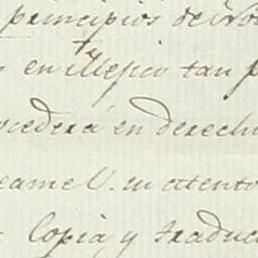 principios de No
en Mejico tan p
ocederá en derech
eame V. su atento
Copia y traduc